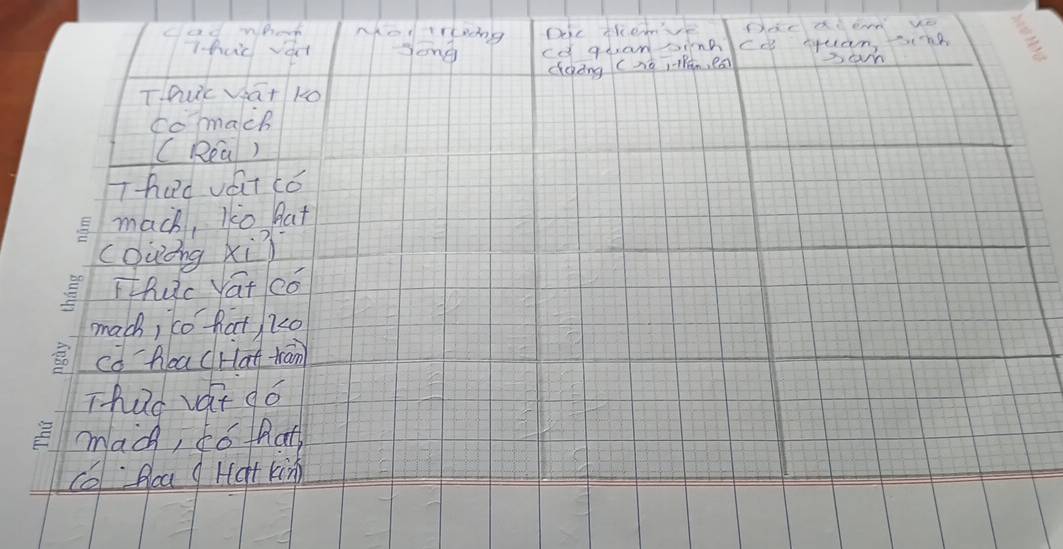 Các nhóm
Thực vật
Môi trường
sống
Đặc điểm về
cơ quan sinh
dưỡng (rễ, thân, lá)
Đặc điểm về
cơ quan sinh
sản
Thực vật ko
có mạch
(Rêu)
Thực vật có
mạch, ko hạt
(Dương xỉ)
Thực vật có
mạch, có hạt, ko
có hoa (Hạt trần)
Thực vật có
mạch, có hạt,
có hoa (Hạt kín)
Thứ ngày tháng năm